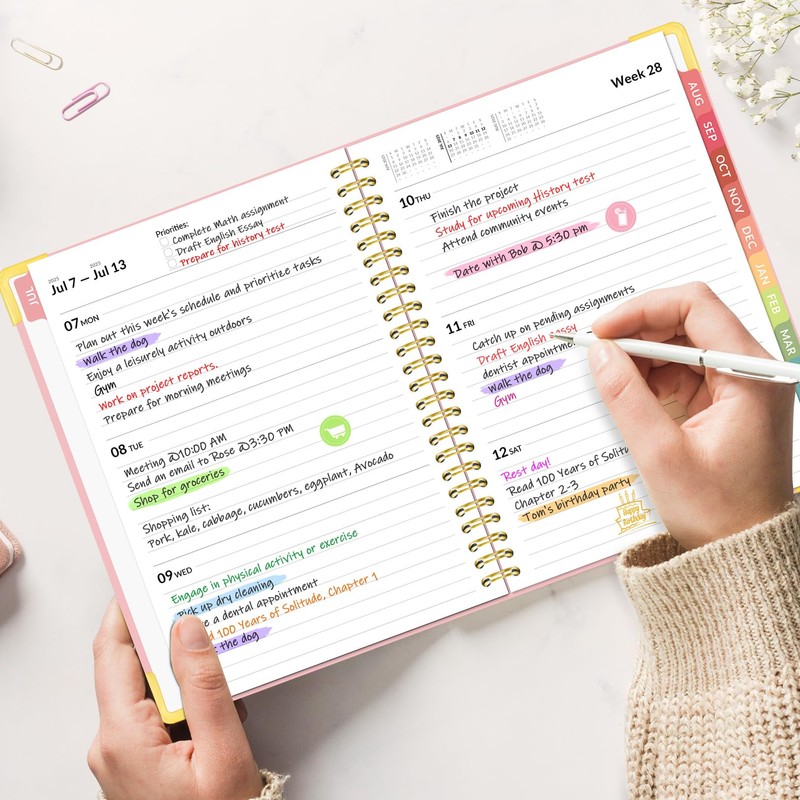 Week 28
Priorities:
Complete Math assignment
Draft English Essay
Prepare for history test
2025 2025
Jul 7 — Jul 13
JUL
07 MON
Plan out this week's schedule and prioritize tasks
Walk the dog
Enjoy a leisurely activity outdoors
Gym
Work on project reports.
Prepare for morning meetings
08 TUE
Meeting @10:00 AM
Send an email to Rose @3:30 PM
Shop for groceries
Shopping list:
Pork, kale, cabbage, cucumbers, eggplant, Avocado
09 WED
Engage in physical activity or exercise
Pick up dry cleaning
a dental appointment
100 Years of Solitude, Chapter 1
the dog
10 THU
Finish the project
Study for upcoming History test
Attend community events
Date with Bob @ 5:30 pm
11 FRI
Catch up on pending assignments
Draft English
dentist
Walk the dog
Gym
12 SAT
Rest day!
Read 100 Years of
Chapter 2-3
Tom's birthday party
Happy
Birthday
AUG
SEP
OCT
NOV
DEC
JAN
FEB
MAR